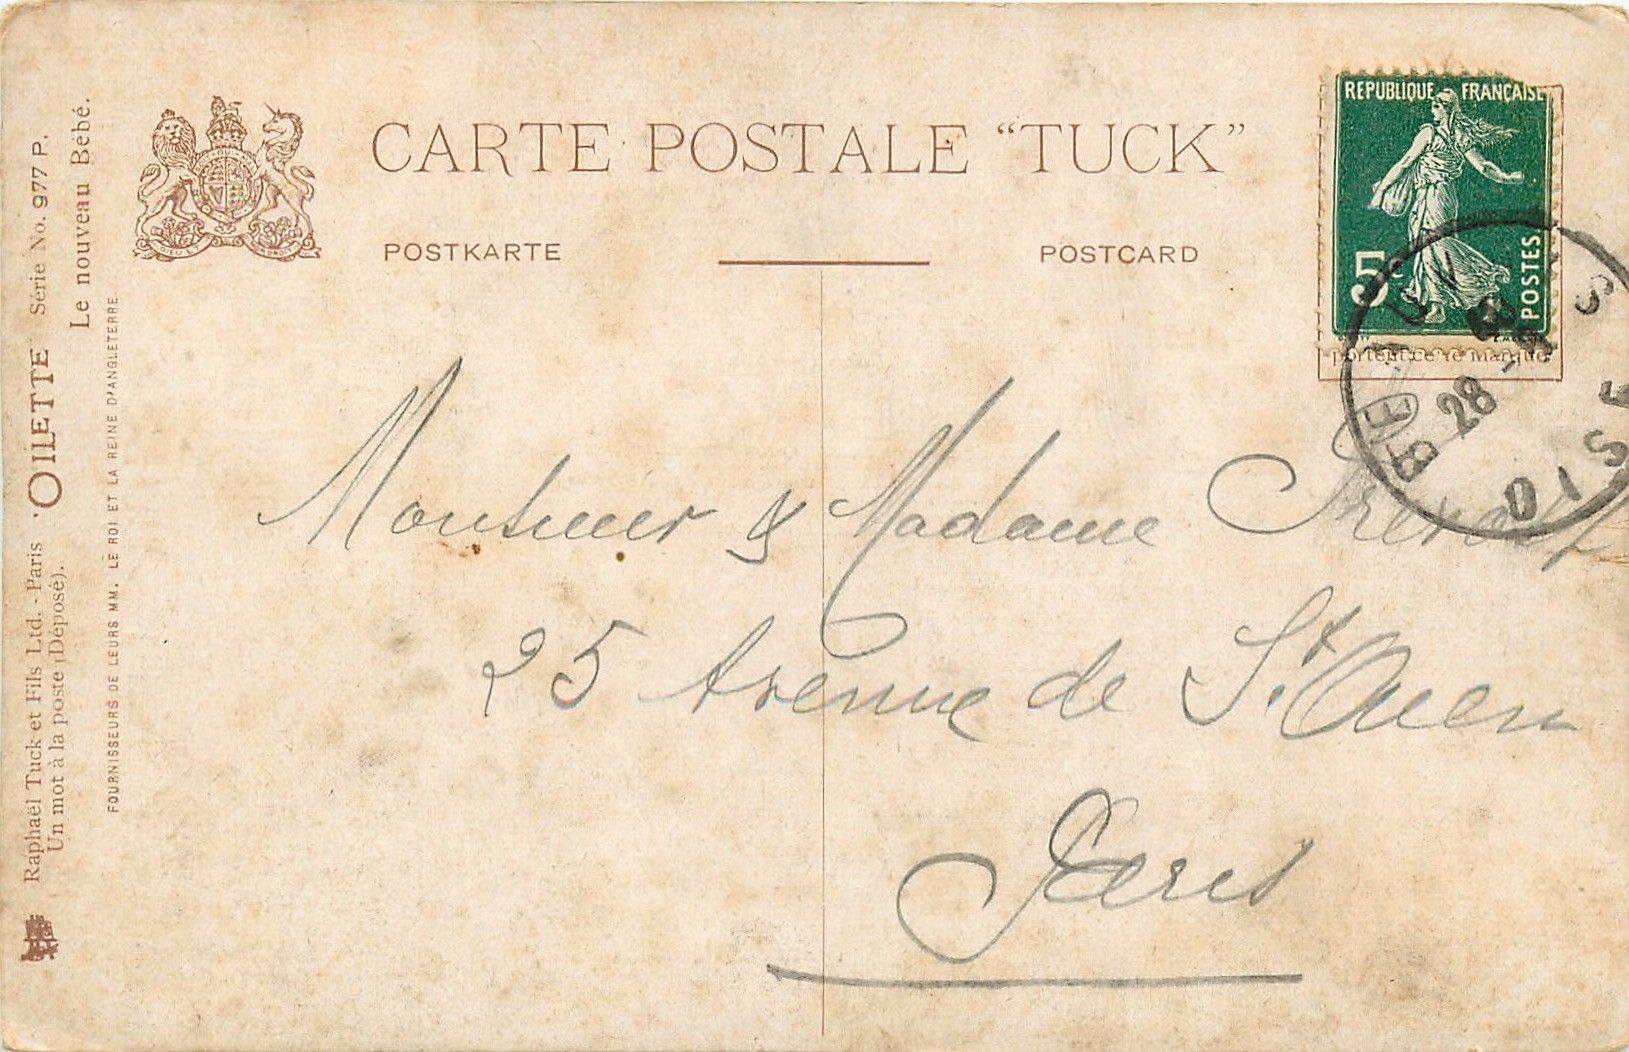 CARTE POSTALE “TUCK”
POSTKARTE
POSTCARD
REPUBLIQUE FRANÇAISE
5c
POSTES
portent ce te Marque
BEAUVAIS
28
OISE
Monsieur & Madame
25 Avenue de St. Ouen
Paris
Raphaël Tuck et Fils Ltd. - Paris “OILETTE Série No. 977 P.
Un mot à la poste (Déposé). Le nouveau Bébé.
FOURNISSEURS DE LEURS MM. LE ROI ET LA REINE D'ANGLETERRE